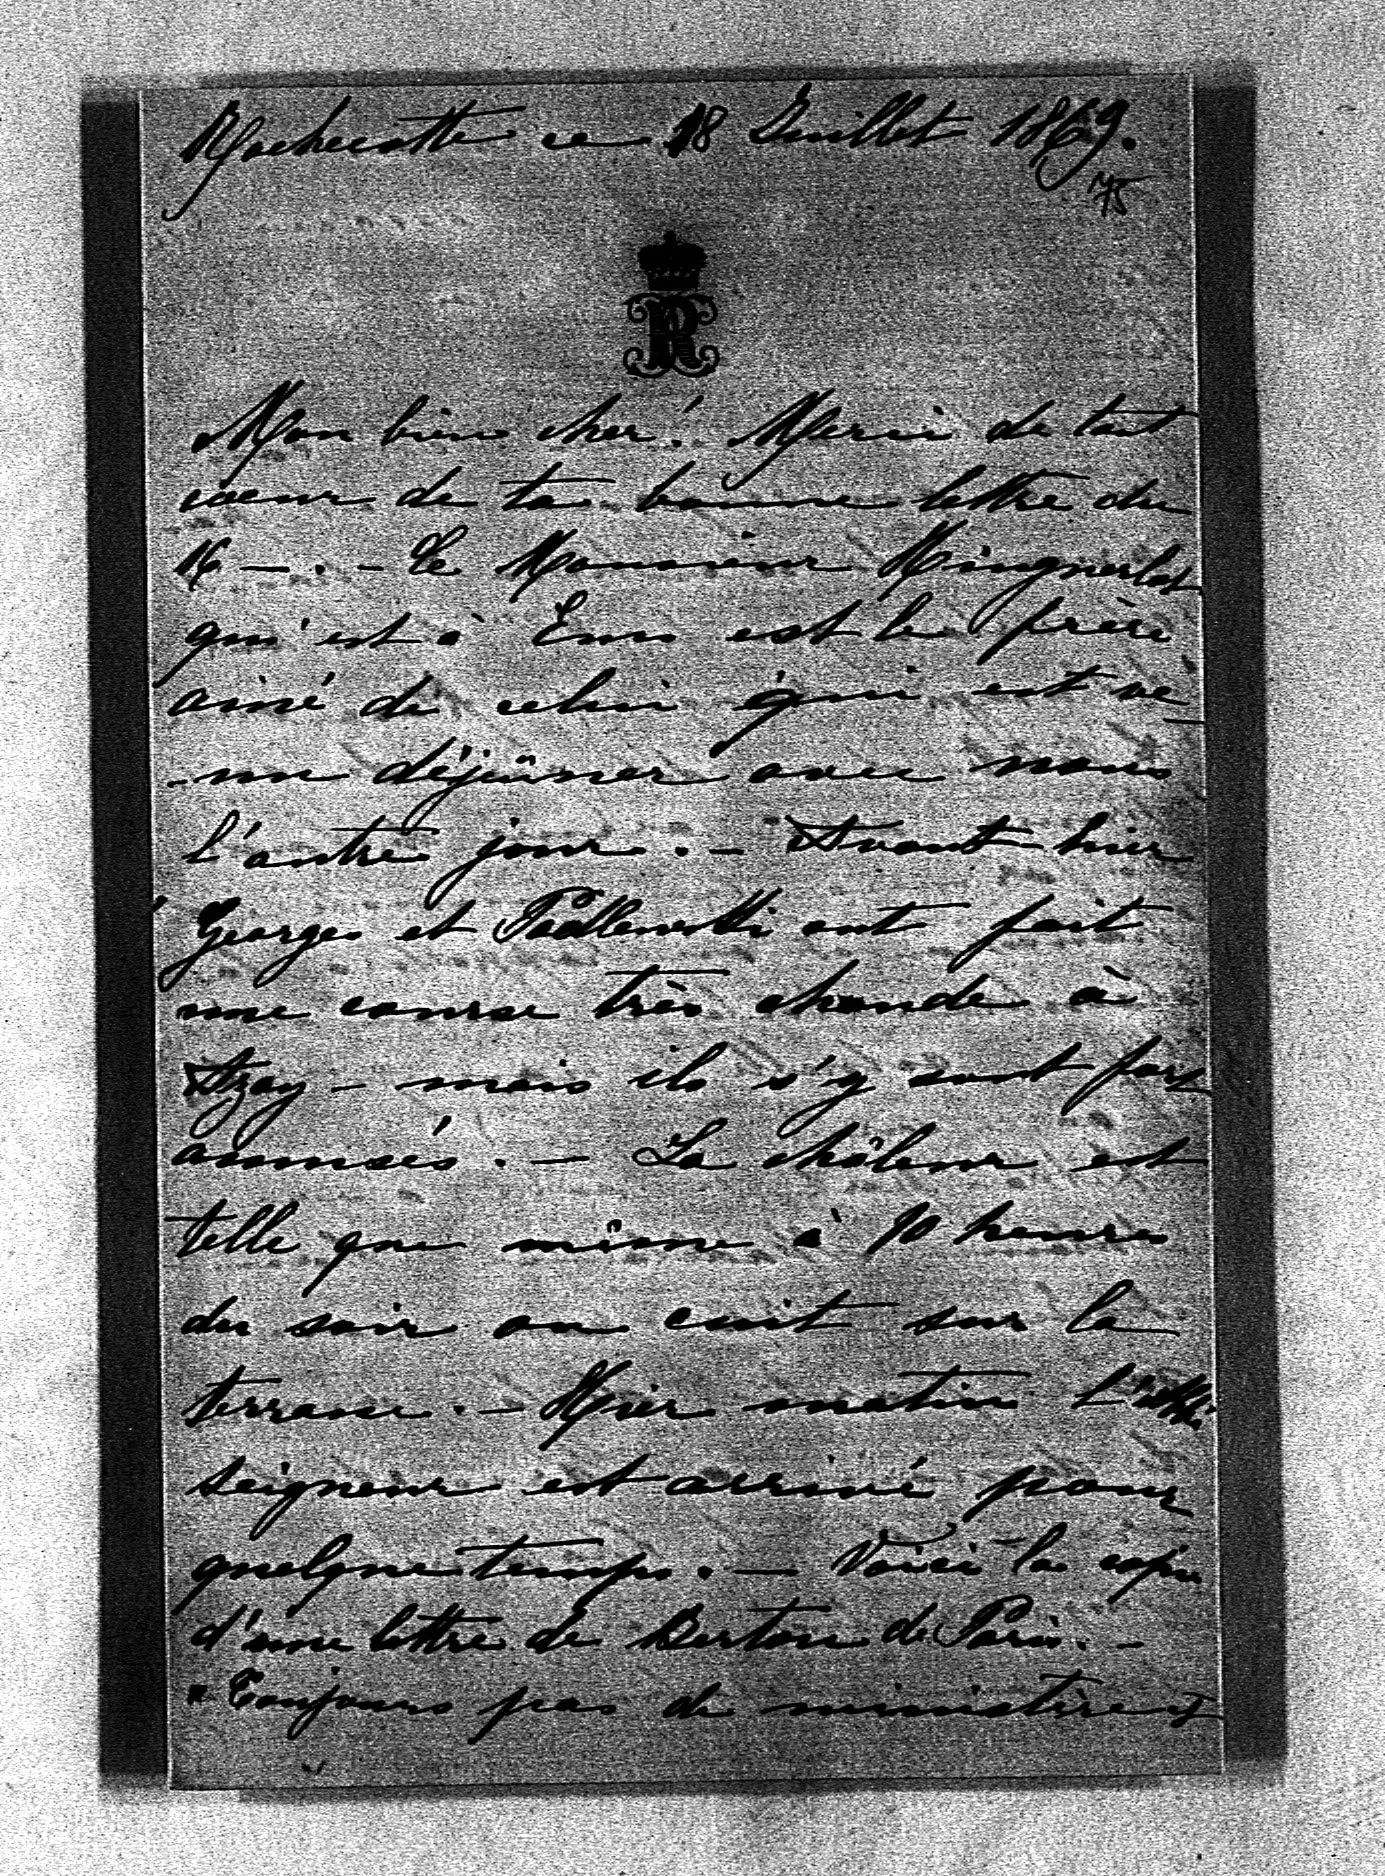 Rochecotte ce 18 Juillet 1869.
75
R
Mon bien cher! Merci de tout
coeur de ta bonne lettre du
16 —. - Le Monsieur
qui est à Ems est le frère
ainé de celui qui est ve
-nu déjeûner avec nous
l'autre jour. - Avant-hier
Georges et Podlewski ont fait
une course très chaude à
Azay - mais ils s'y sont fort
amusés. - La châleur est
telle que même à 10 heures
du soir on cuit sur la
terrasse. - Hier matin
seigneur est arrivé pour
quelque temps. - Voici la copie
d'une lettre de Berton de Paris. -
"Toujours pas de ministère